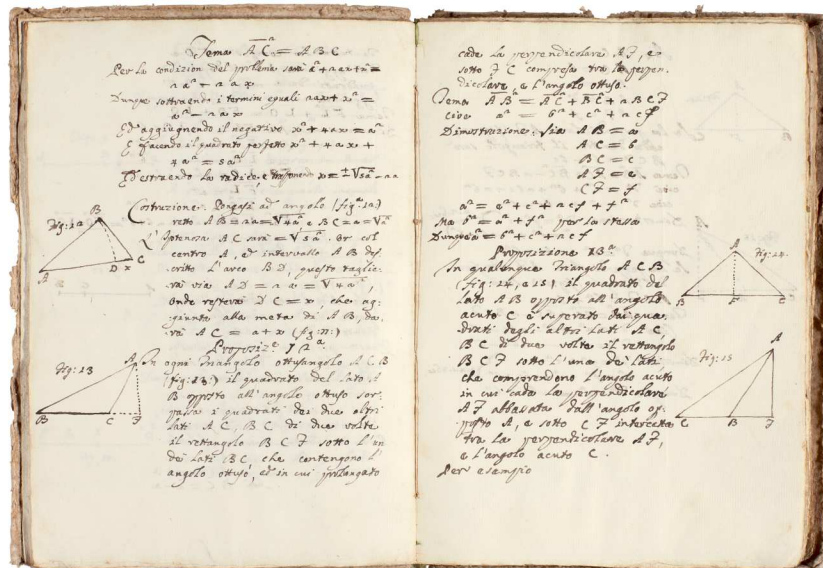 Tema AC² = ABC
Per la condizion del problema sarà a² + 2ax + x² =
2a² - 2ax
Dunque sottraendo i termini eguali 2ax + x² =
a² - 2ax
Ed aggiugnendo il negativo x² + 4ax = a²
E facendo il quadrato perfetto x² + 4ax +
4a² = 5a²
Ed estraendo la radice, e trasponendo x = ±√5a² - 2a
Costruzione. Pongasi ad angolo (fig.ª 12)
retto AB = 2a = √4a² e BC = a = √a²
L'Ipotenusa AC sarà = √5a². Or col
centro A, ed intervallo AB des-
critto l'arco BD, questo taglie-
rà via AD = 2a = √4a²,
onde resterà DC = x, che ag-
giunta alla metà di AB, da-
rà AC = a + x (fig: 11:)
Proposiz.e 12ª
In ogni Triangolo ottusangolo ACB
(fig: 13:) il quadrato del lato A
B opposto all'angolo ottuso sor-
passa i quadrati dei due altri
lati AC, BC di due volte
il rettangolo BCF sotto l'un
dei lati BC che contengono l'
angolo ottuso, ed in cui prolungato
Fig: 12
B
A
D
x
C
Fig: 13
A
B
C
F
cade la perpendicolare AF, e
sotto FC compresa tra la perpen-
dicolare, e l'angolo ottuso.
Tema AB² = AC² + BC² + 2BCF
cioè a² = b² + c² + 2cf
Dimostrazione. Sia AB = a
AC = b
BC = c
AF = e
CF = f
a² = e² + c² + 2cf + f²
Ma b² = e² + f² per la stessa
Dunque a² = b² + c² + 2cf
Proposizione 13ª
In qualunque Triangolo ACB
(fig: 14, e 15) il quadrato del
lato AB opposto all'angolo
acuto C è superato dai qua-
drati degli altri lati AC,
BC di due volte il rettangolo
BCF sotto l'uno de lati
che comprendono l'angolo acuto
in cui cade la perpendicolare
AF abbassata dall'angolo op-
posto A, e sotto CF intercetta
tra la perpendicolare AF,
e l'angolo acuto C.
Per esempio
Fig: 14
A
B
F
C
Fig: 15
A
C
B
F